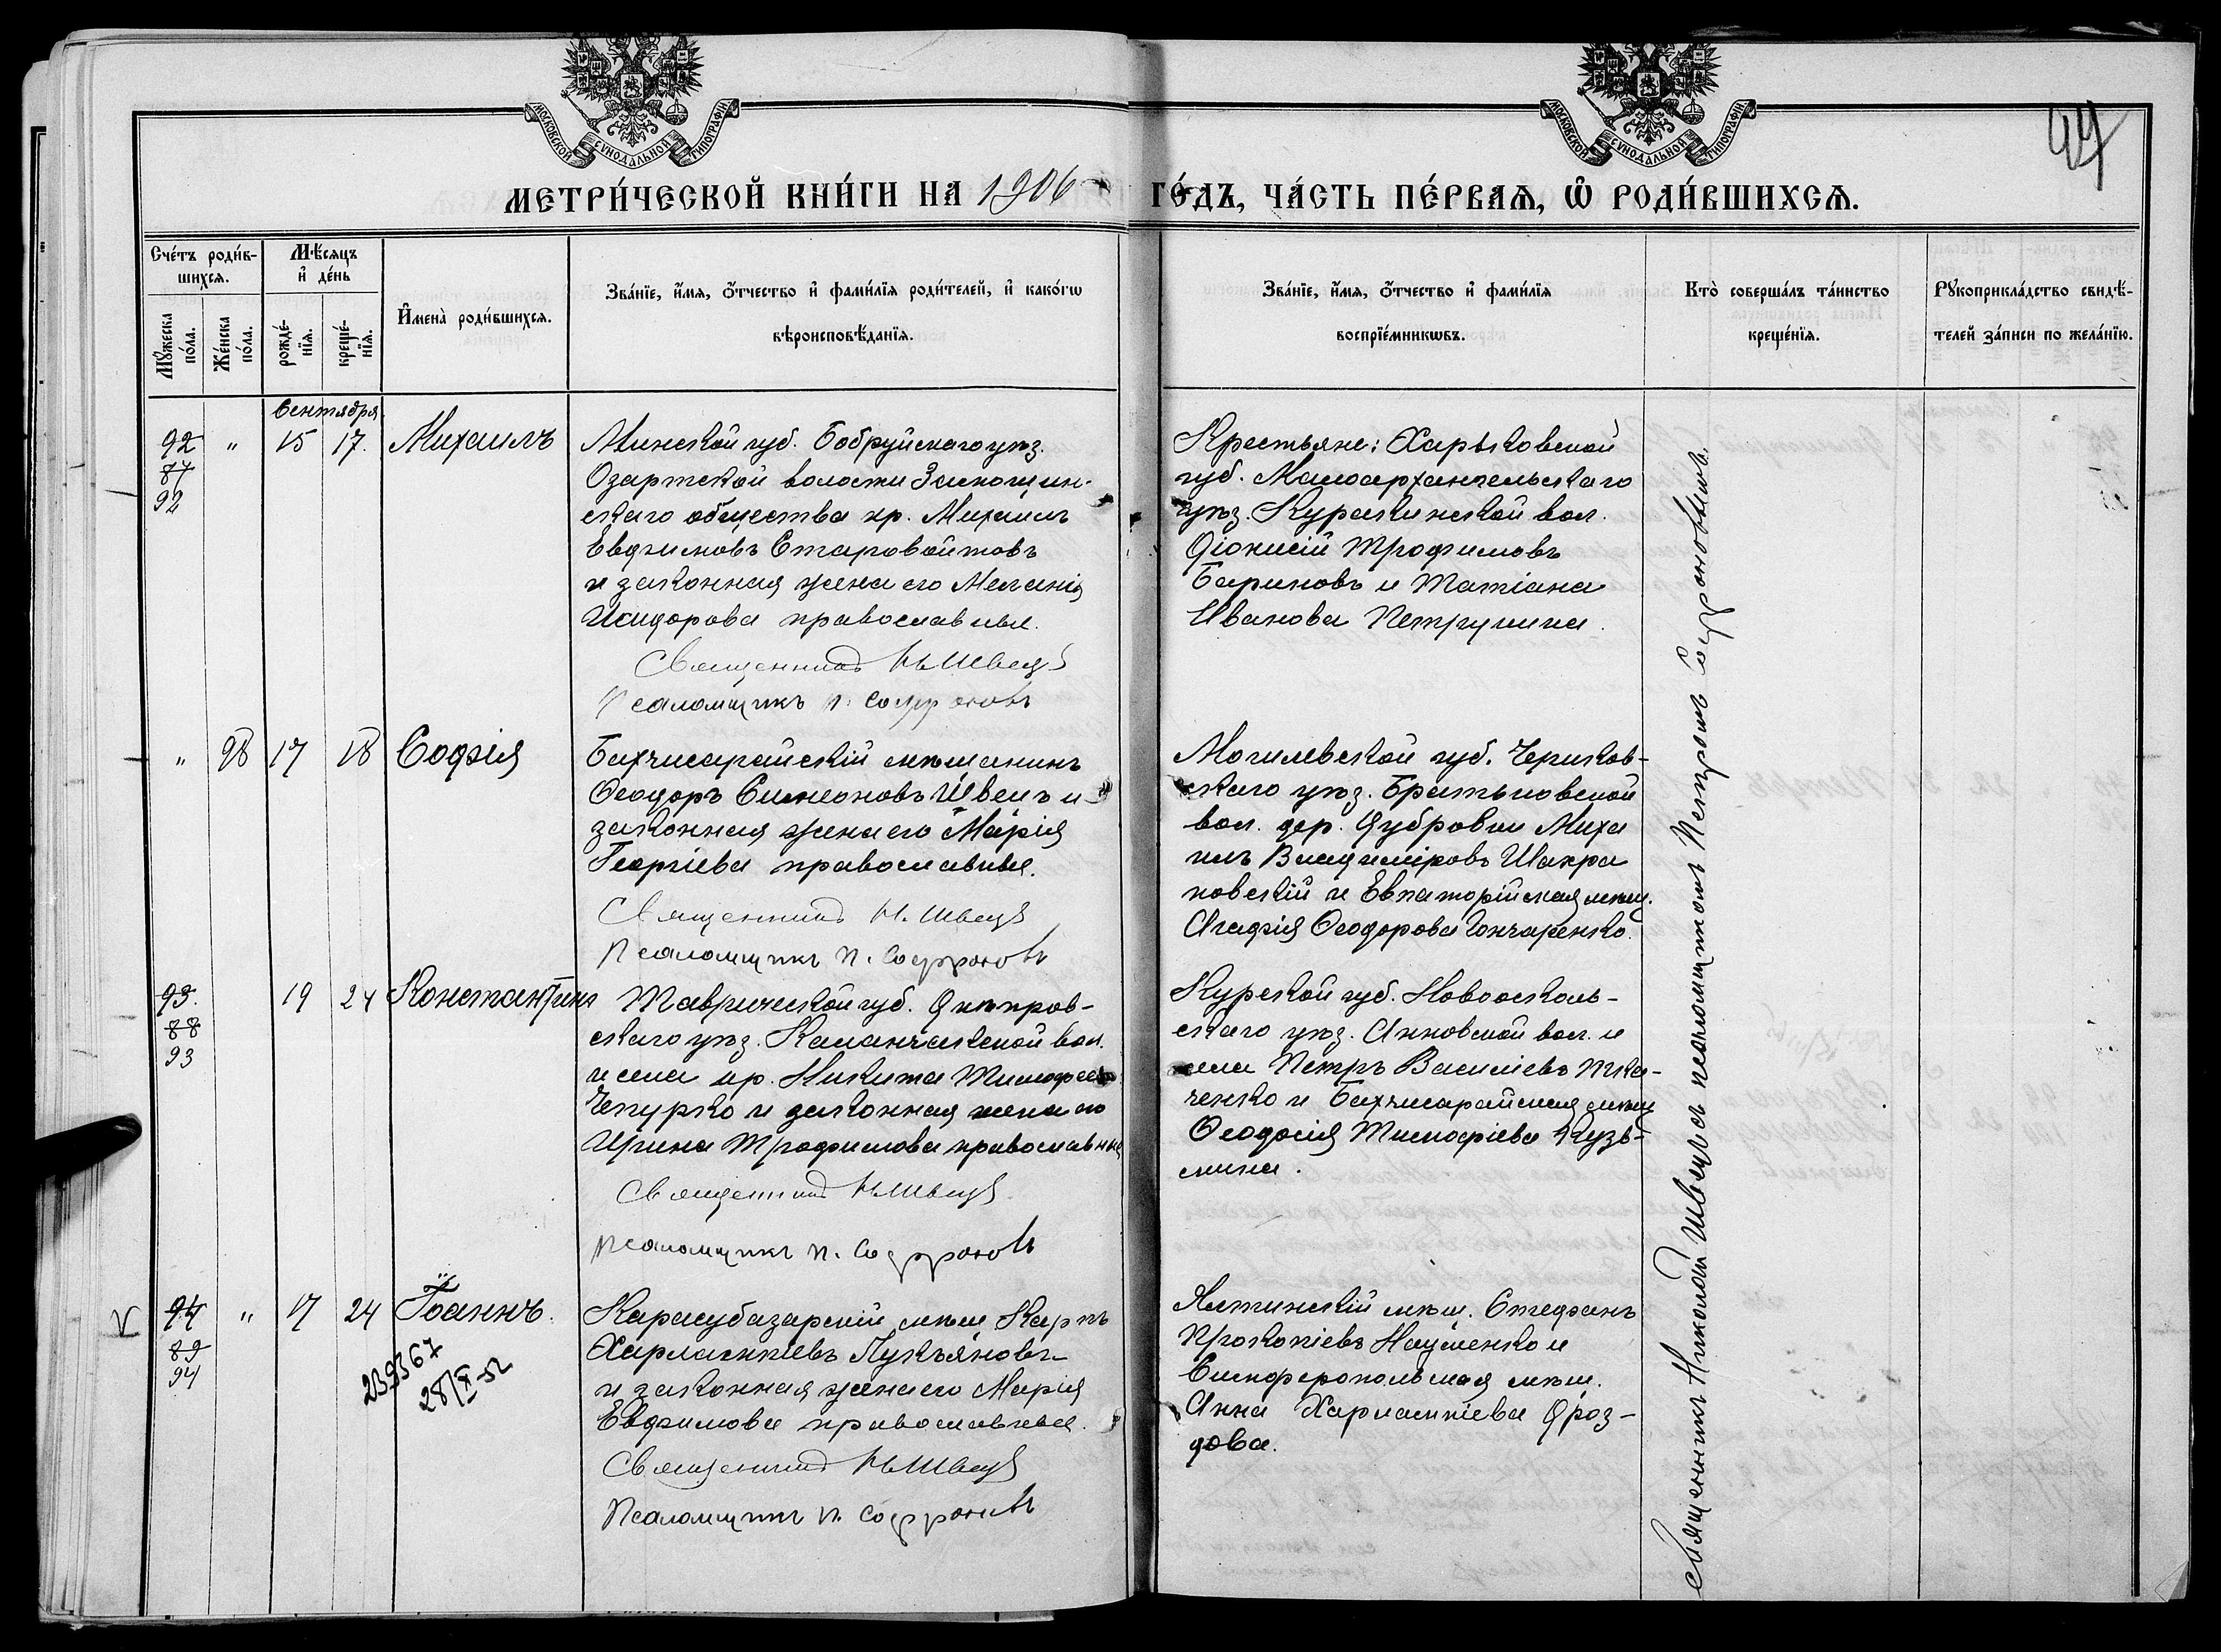 МОСКОВСКОЙ СѴНОДАЛЬНОЙ ТИПОГРАФІИ
МОСКОВСКОЙ СѴНОДАЛЬНОЙ ТИПОГРАФІИ
МЕТРИ́ЧЕСКОЙ КНИ́ГИ НА 1906 ГО́ДЪ, ЧА́СТЬ ПЕ́РВАѦ, Ѡ҆ РОДИ́ВШИХСѦ.
Сче́тъ роди́в-
шихсѧ.
Мѣ́сѧцъ
и҆ де́нь
Мꙋ́жеска
по́ла.
Же́нска
по́ла.
рожде́-
нїѧ.
креще́-
нїѧ.
И҆мена̀ роди́вшихсѧ.
Зва́нїе, и҆́мѧ, ѻ҆́тчество и҆ фами́лїѧ роди́телей, и҆ како́гѡ
вѣроисповѣ́данїѧ.
Зва́нїе, и҆́мѧ, ѻ҆́тчество и҆ фами́лїѧ
воспрїе́мникѡвъ.
Кто̀ соверша́лъ та́инство
креще́нїѧ.
Рꙋкоприкла́дство свидѣ́-
телей за́писи по жела́нїю.
Сентября
92 " 15 17. Михаилъ
87
92
Минской губ. Бобруйскаго уѣз.
Озаркской волости
скаго общества кр. Михаилъ
Евфимовъ Старовойтовъ
и законная жена его Меланія
Исидорова православные.
Священникъ Н. Швецъ
Псаломщикъ П. Софроновъ
Крестьяне: Харьковской
губ. Малоархангельскаго
уѣз. Куракинской вол.
Діонисій Трофимовъ
Бариновъ и Татіана
Иванова Петрунина.
" 98 17 18 Софія
Бахчисарайскій мѣщанинъ
Ѳеодоръ Симеоновъ Швецъ и
законная жена его Марія
Георгіева православные.
Священникъ Н. Швецъ
Псаломщикъ П. Софроновъ
Могилевской губ. Чериков-
скаго уѣз. Братьковской
вол. дер. Дубровки Миха
илъ Владиміровъ Шакра
новскій и Евпаторійская мѣщ.
Агафія Ѳеодорова Гончаренко.
93. 19 24 Константинъ
88
93
Таврической губ. Днѣпров-
скаго уѣз. Каланчакской вол.
и села кр. Никита Тимофеевъ
Чепурко и законная жена его
Ирина Трофимова православные
Священникъ Н. Швецъ
Псаломщикъ П. Софроновъ
Курской губ. Новосколь-
скаго уѣз. Анновской вол. и
села Петръ Василіевъ Пика-
ченко и Бахчисарайская мѣщ
Ѳеодосія Тимофіева Кузь-
мина.
94 " 17 24 Іоаннъ.
89
94
239367
28/X-52
Карасубазарскій мѣщ Карпъ
Харлампіевъ Лукъяновъ
и законная жена его Марія
Евфимова православные.
Священникъ Н. Швецъ
Псаломщикъ П. Софроновъ
Ялтинскій мѣщ. Стефанъ
Прокопіевъ Науменко и
Симферопольская мѣщ.
Анна Харлампіева Дроз-
дова.
Священникъ Николай Швецъ съ псаломщикомъ Петромъ Софроновымъ.